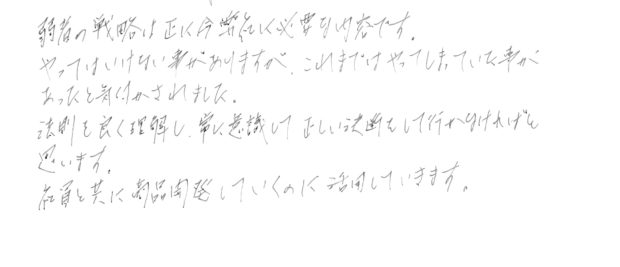 弱者の戦略は正に今弊社に必要な内容です。
やってはいけない事がありますが、これまではやってしまっていた事が
あったと気付かされました。
法則を良く理解し、常に意識して正しい決断をして行かなければと
思います。
社員と共に商品開発していくのに活用していきます。